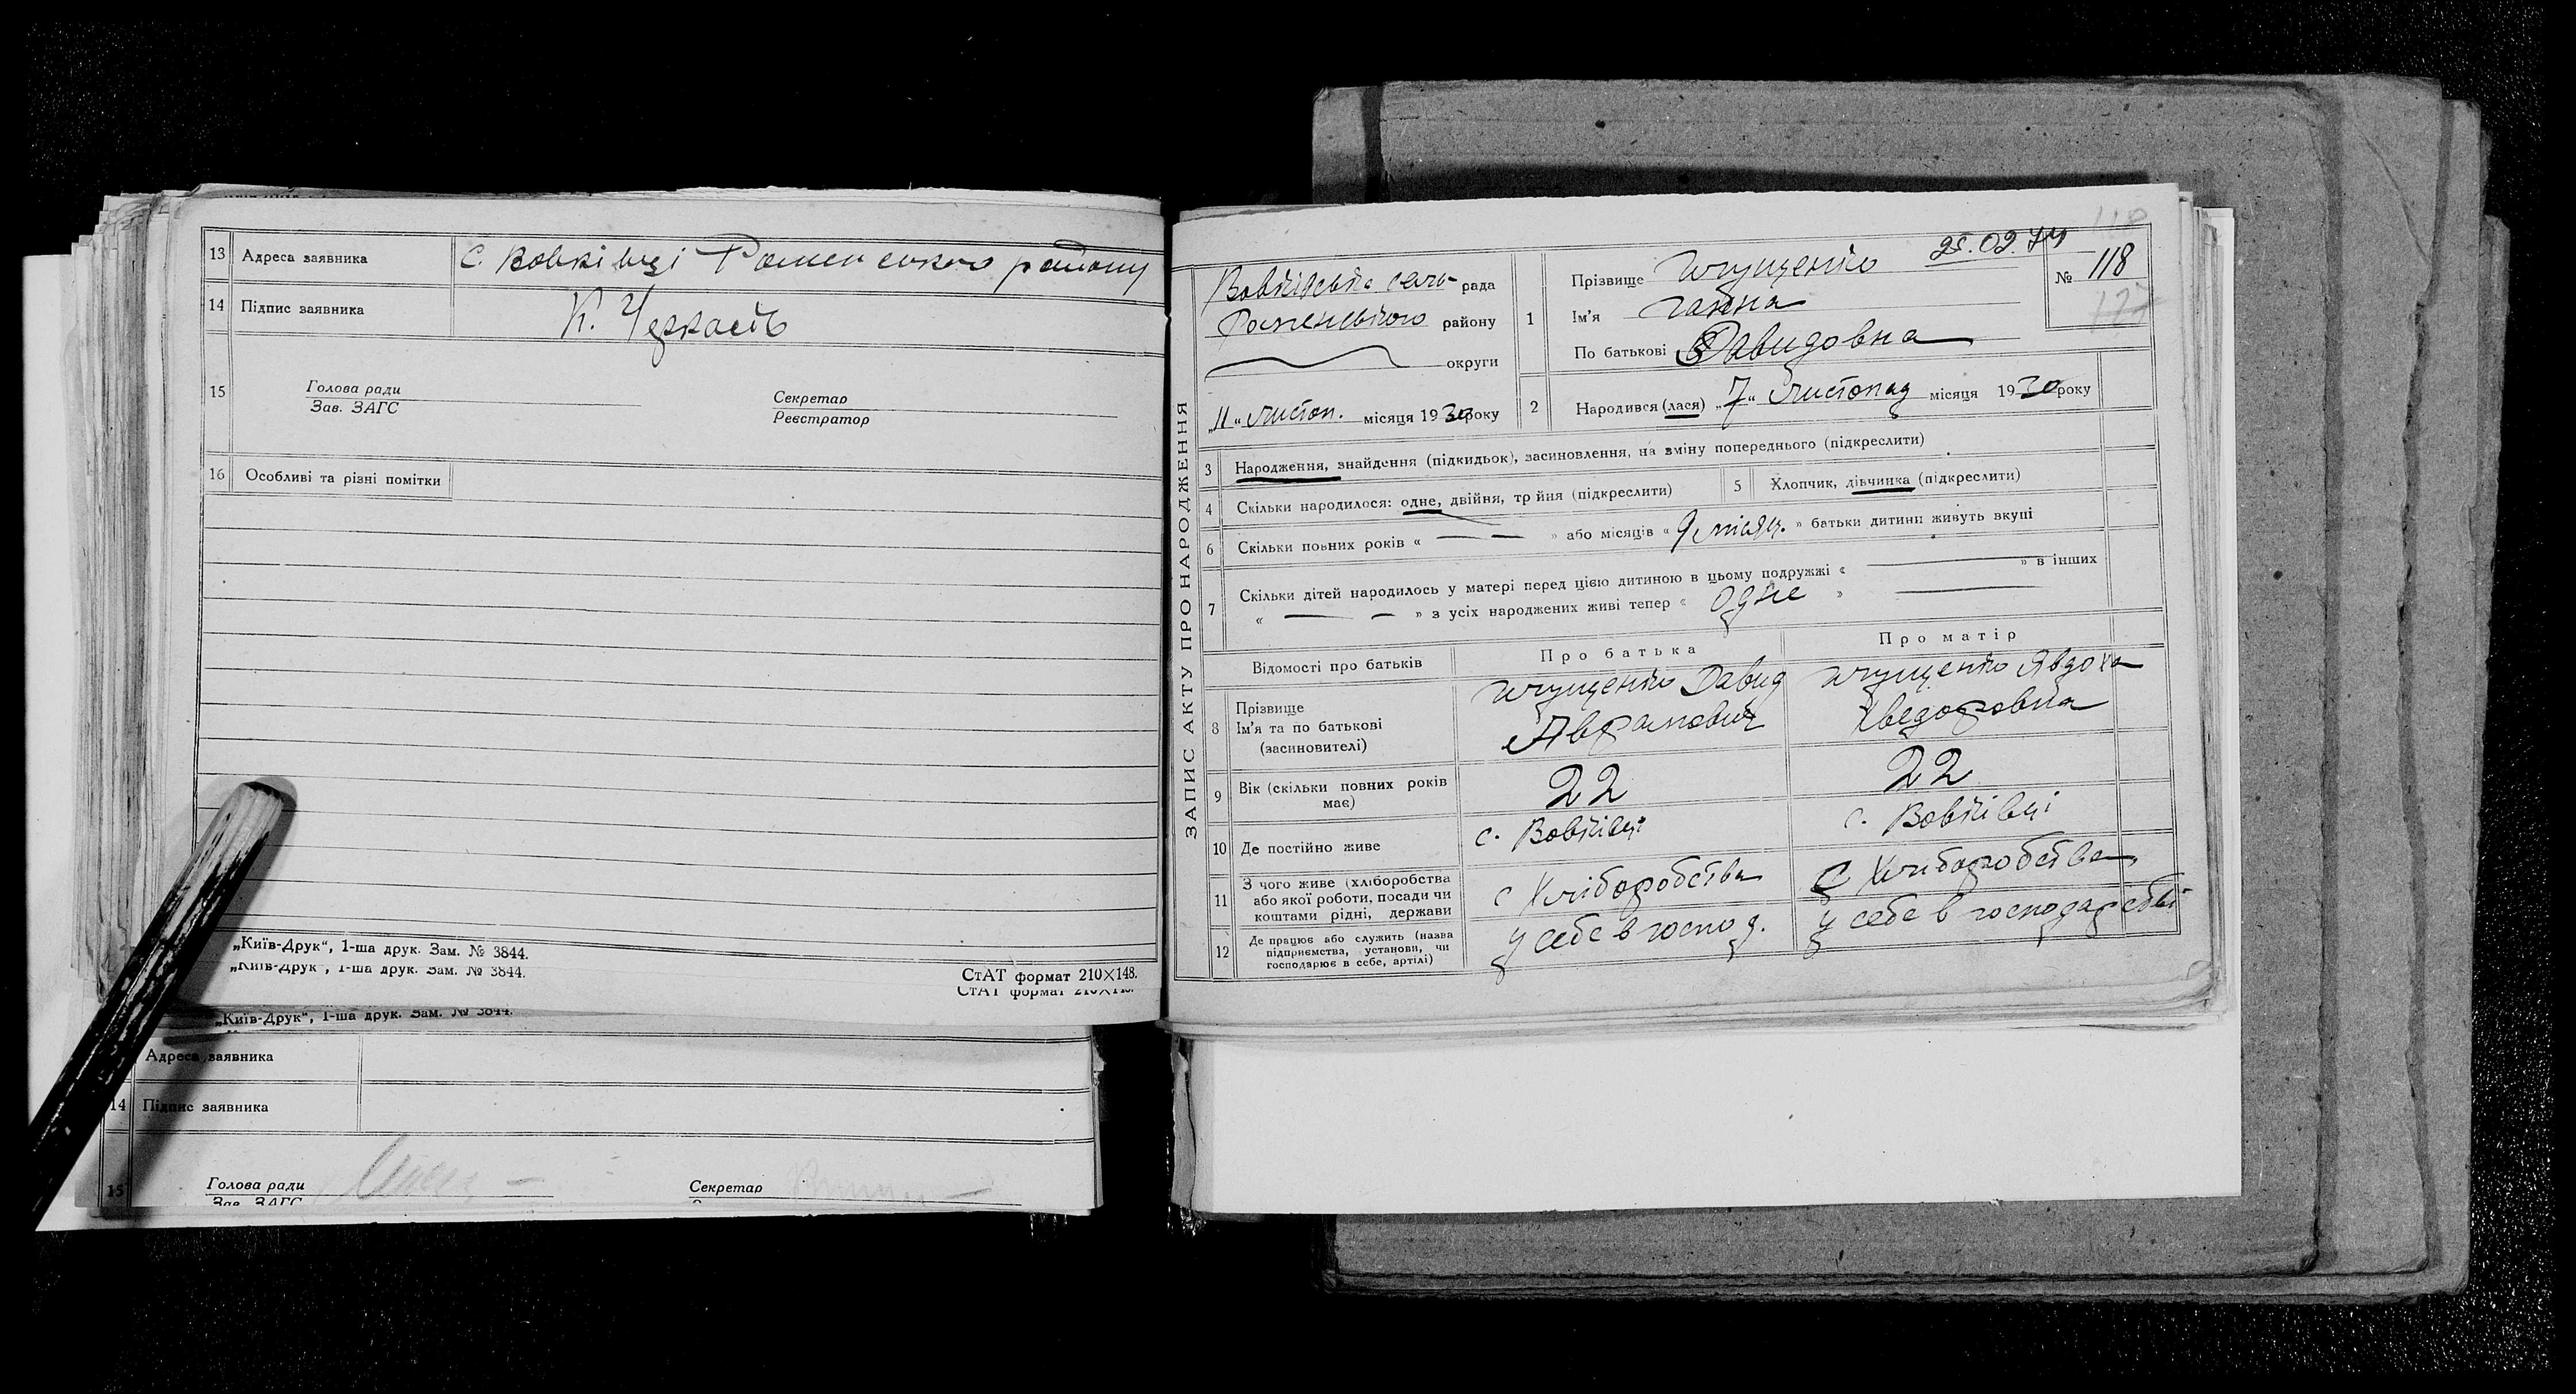 13 Адреса заявника с. Вовківці Роменського району
14 Підпис заявника К. Черкась
15 Голова ради
Зав. ЗАГС
Секретар
Реєстратор
16 Особливі та різні помітки
„Київ-Друк“, 1-ша друк. Зам. № 3844.
„Київ-Друк“, 1-ша друк. Зам. № 3844.
СтАТ формат 210×148.
СтАТ формат 210×148.
„Київ-Друк“, 1-ша друк. Зам. № 3844.
Адреса заявника
14 Підпис заявника
15 Голова ради
Зав. ЗАГС
Секретар
ЗАПИС АКТУ ПРО НАРОДЖЕННЯ
118
25.02.74
№ 118
Вовківська сель- рада
Роменського району
округи
„11“ листоп. місяця 1930 року
1 Прізвище Ігнущенко
Ім'я Ганна
По батькові Давидовна
2 Народився (лася) „7“ Листопад місяця 1930 року
3 Народження, знайдення (підкидьок), засиновлення, на зміну попереднього (підкреслити)
4 Скільки народилося: одне, двійня, трійня (підкреслити)
5 Хлопчик, дівчинка (підкреслити)
6 Скільки повних років « — — » або місяців « 9 місяц. » батьки дитини живуть вкупі
7 Скільки дітей народилось у матері перед цією дитиною в цьому подружжі « — » в інших
« — — » з усіх народжених живі тепер « одне » —
Відомості про батьків
Про батька
Про матір
8 Прізвище
Ім'я та по батькові
(засиновителі)
Давид
Аврамович
Явдоха
Хведоровна
9 Вік (скільки повних років має) 22 22
10 Де постійно живе с. Вовківці с. Вовківці
11 З чого живе (хліборобства
або якої роботи, посади чи
коштами рідні, держави
с Хліборобства с Хліборобства
12 Де працює або служить (назва
підприємства, установи, чи
господарює в себе, артілі)
у себе в господ. у себе в господарстві